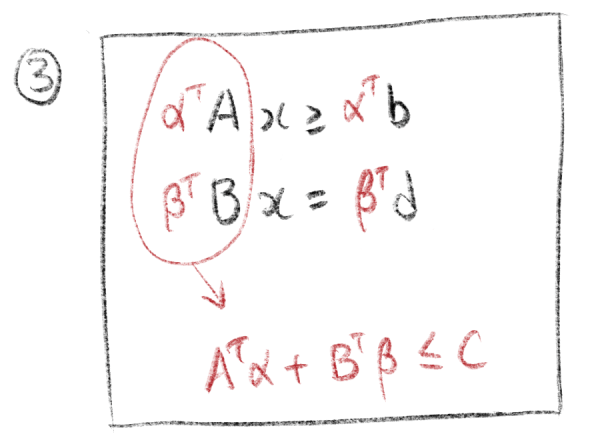 ③
αᵀAx ≥ αᵀb
βᵀBx = βᵀd
Aᵀα + Bᵀβ ≤ C